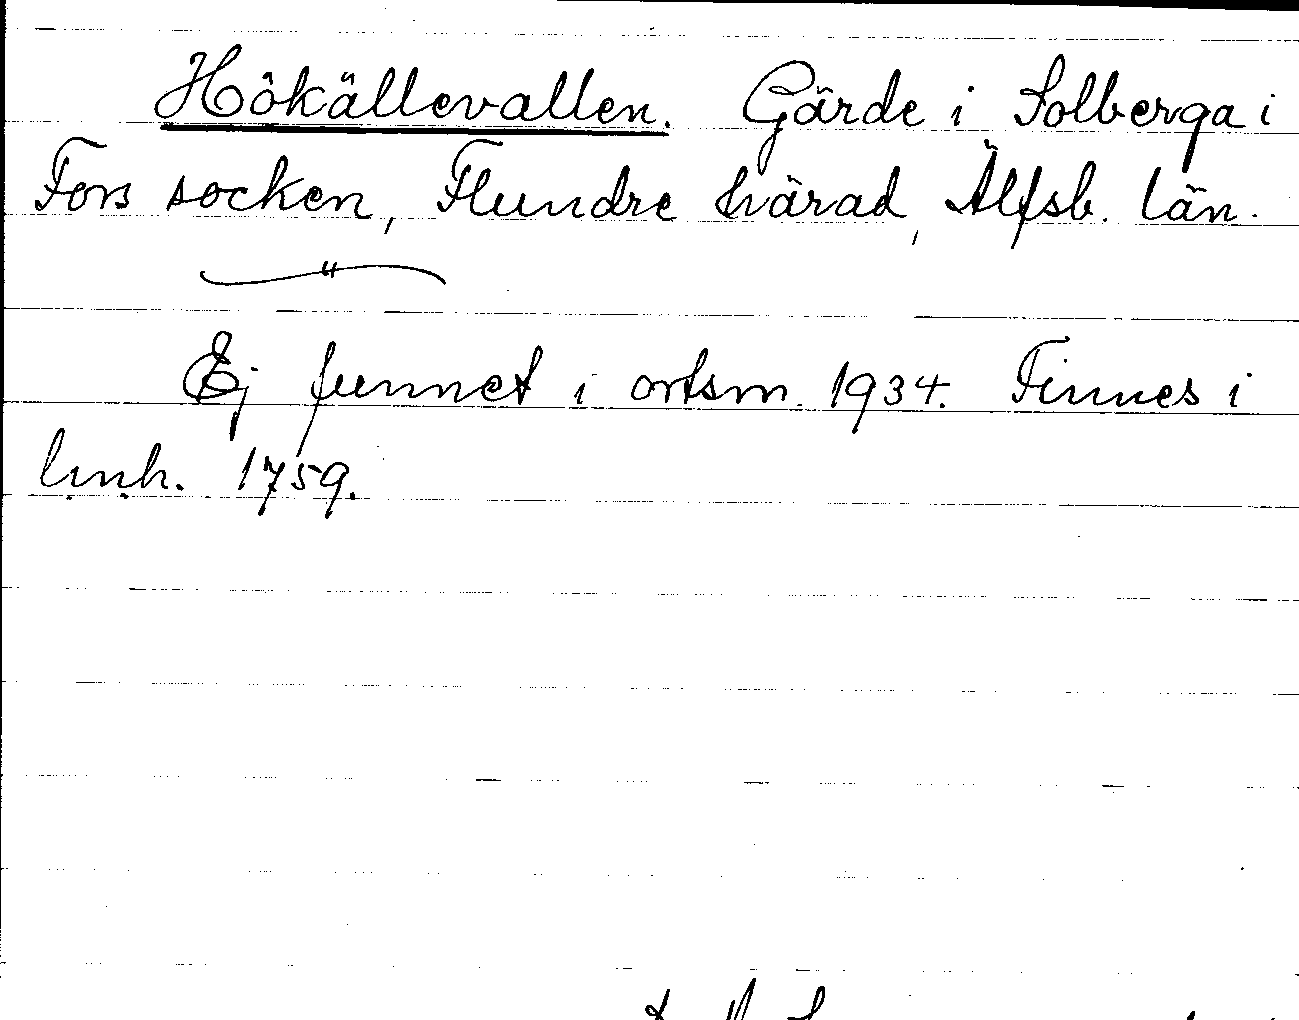 Hökällevallen. Gärde i Solberga i
Fors socken, Flundre härad, Älfsb. län.
"
Ej funnet i ortsm. 1934. Finnes i
lmh. 1759.